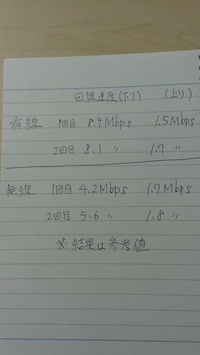 回線速度(下り) (上り)
有線 1回目 8.9Mbps 1.5Mbps
2回目 8.1 〃 1.7 〃
無線 1回目 4.2Mbps 1.7Mbps
2回目 5.6 〃 1.8 〃
※ 結果は参考値